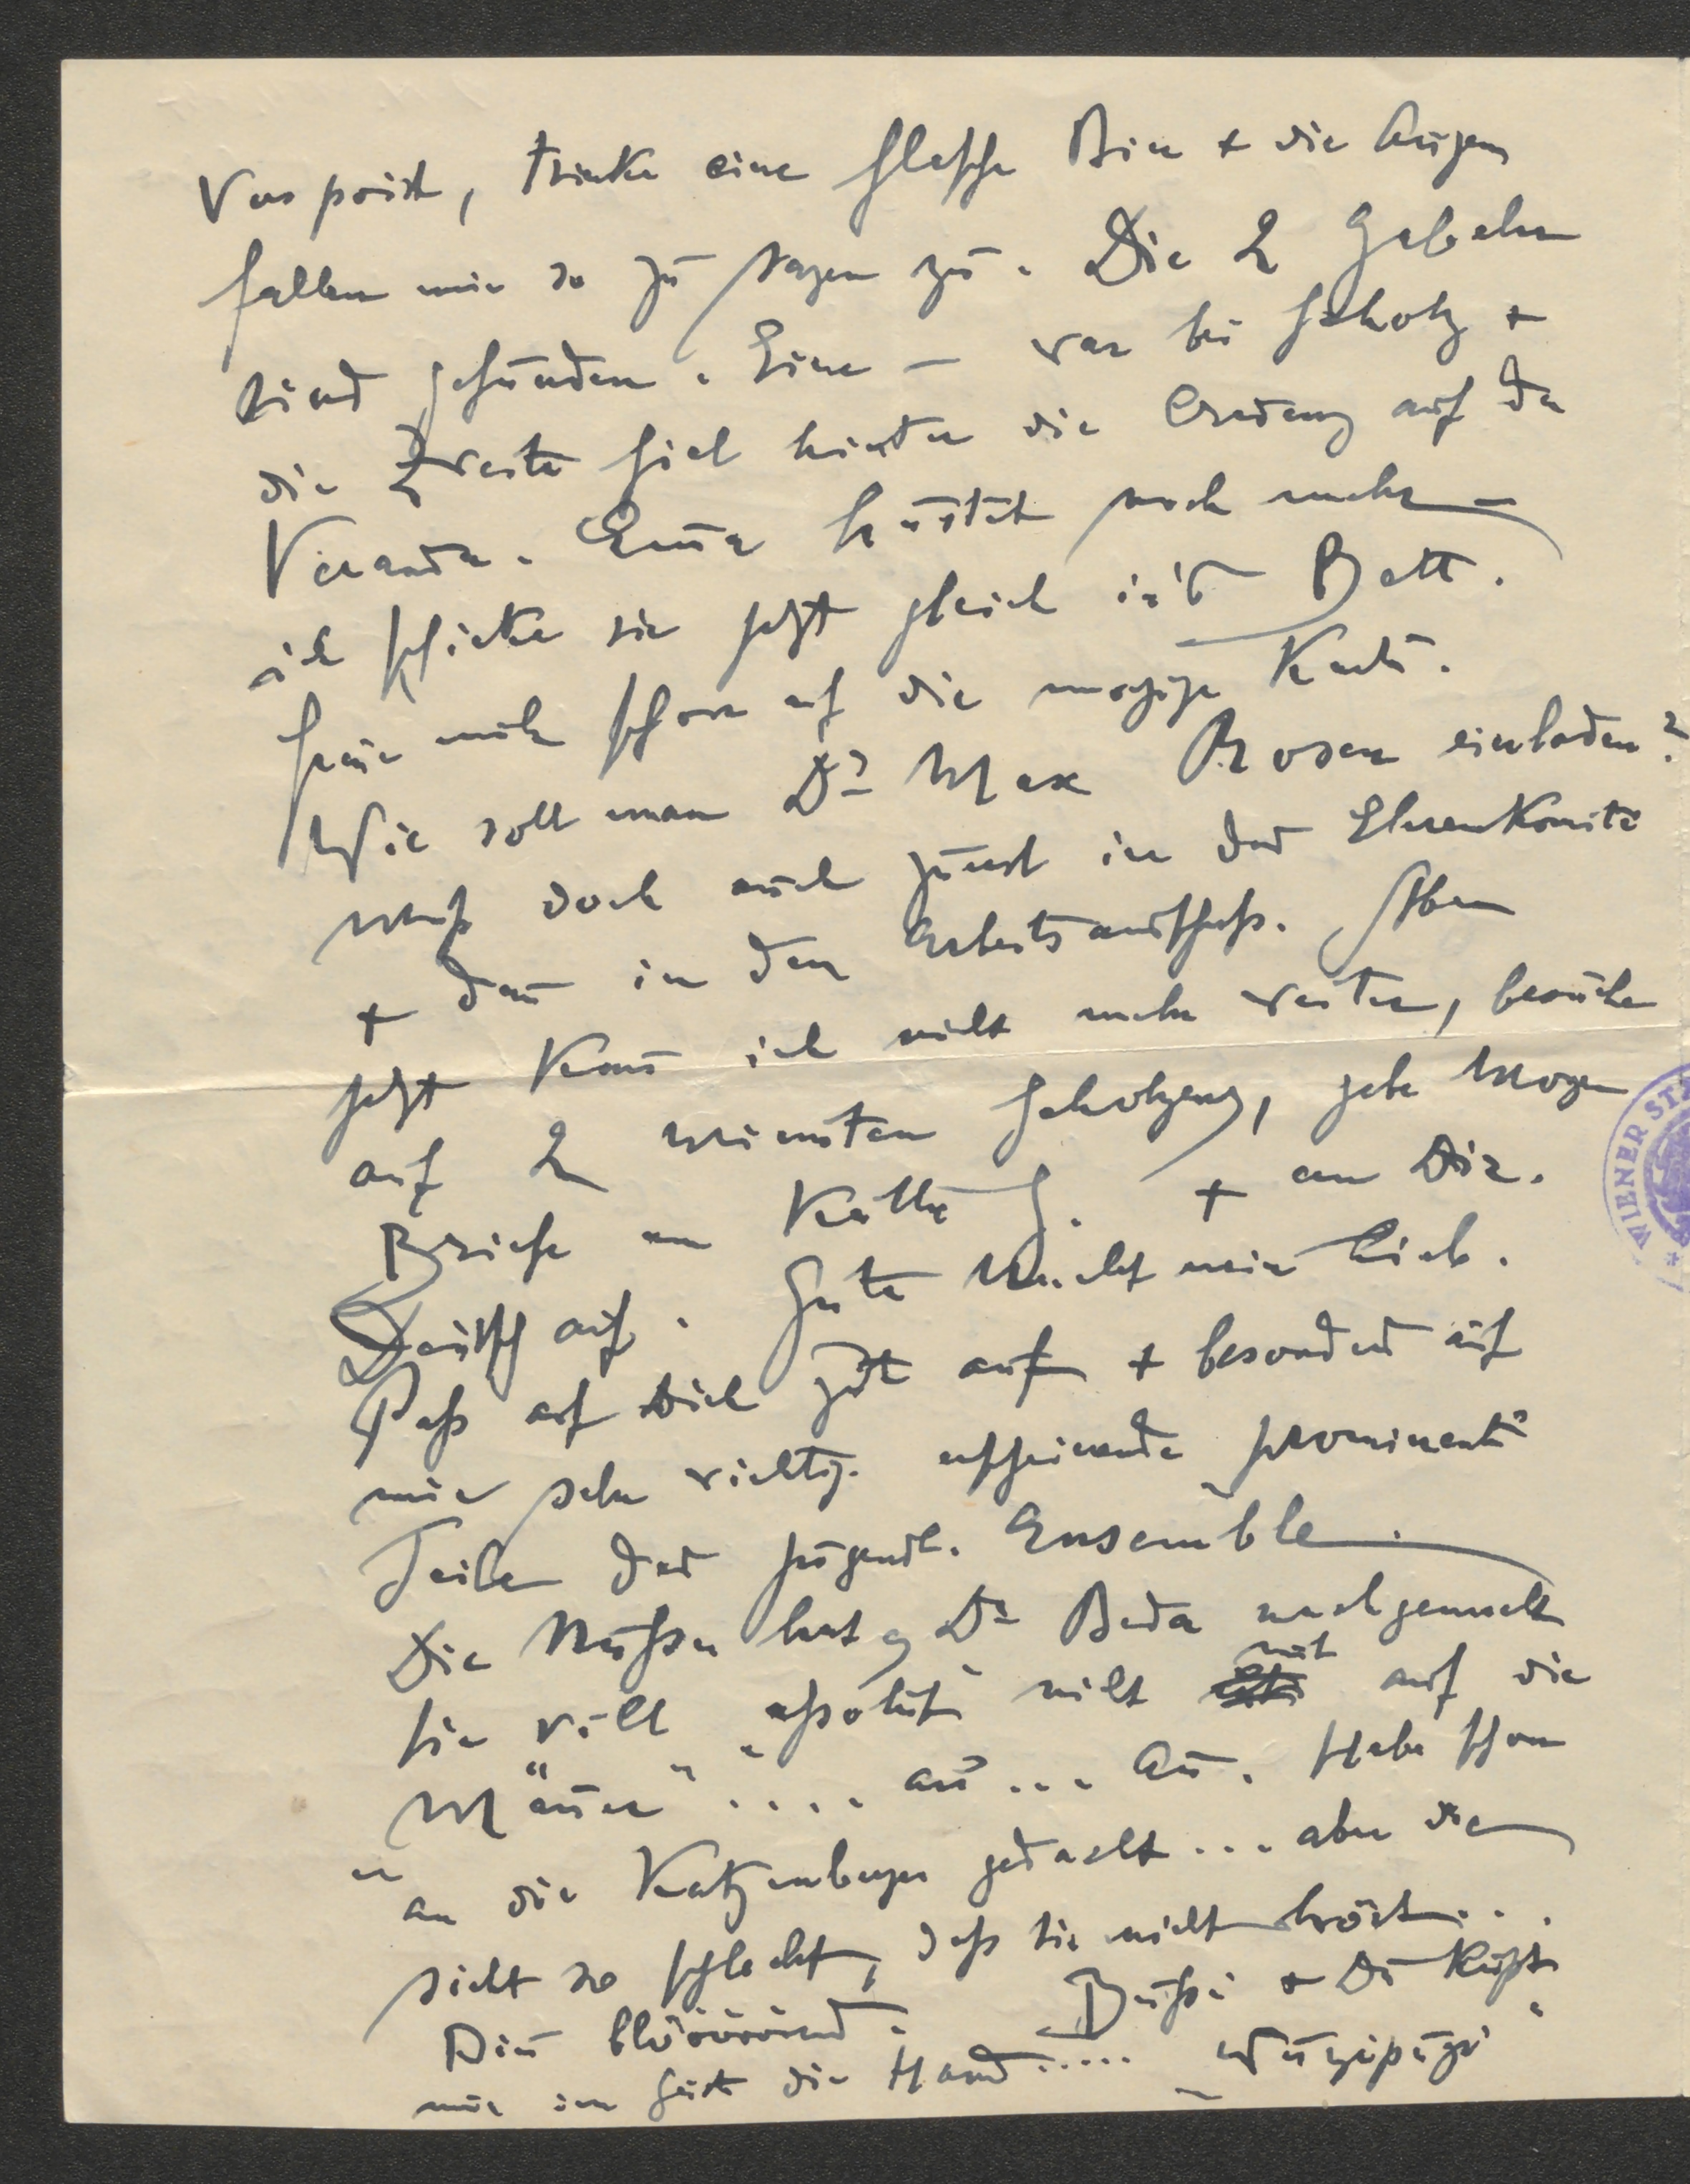 Verspürt, trinke eine Flasche Bier + die Augen
fallen mir so zu sagen zu. Die 2 Gabeln
sind gefunden. Eine – war bei Scholz +
die Zweite fiel hinter die Credenz auf der
Veranda. hustet noch mehr –
ich schicke sie jetzt gleich in's Bett.
freue mich schon auf die morgige Karte.
Wie soll man Dr Max Rosen einladen?
Muß doch auch zuerst in das Ehrenkomité
+ dann in den Arbeitsausschuß. Aber
jetzt kann ich nicht mehr weiter, besuche
auf 2 Minuten Scholzens, gebe Morgen
Briefe an Käthe G. + an Dir.
Deutsch auf. Gute Nacht mein Lieb.
Paß auf Dich gut auf + besonders auf
mir sehr wichtig erscheinende prominente
Teile des jugendl. Ensemble.
Die hat Dr Beda nachgemacht
sie will "absolut" nicht mit auf die
"Mauer" .... au ... au. Habe schon
an die Katzenberger gedacht ... aber die
sieht so schlecht, daß sie nicht hört...
Bin blöööööd. Bußi + Du küßt
mir im Geist die Hand .....
WIENER ST